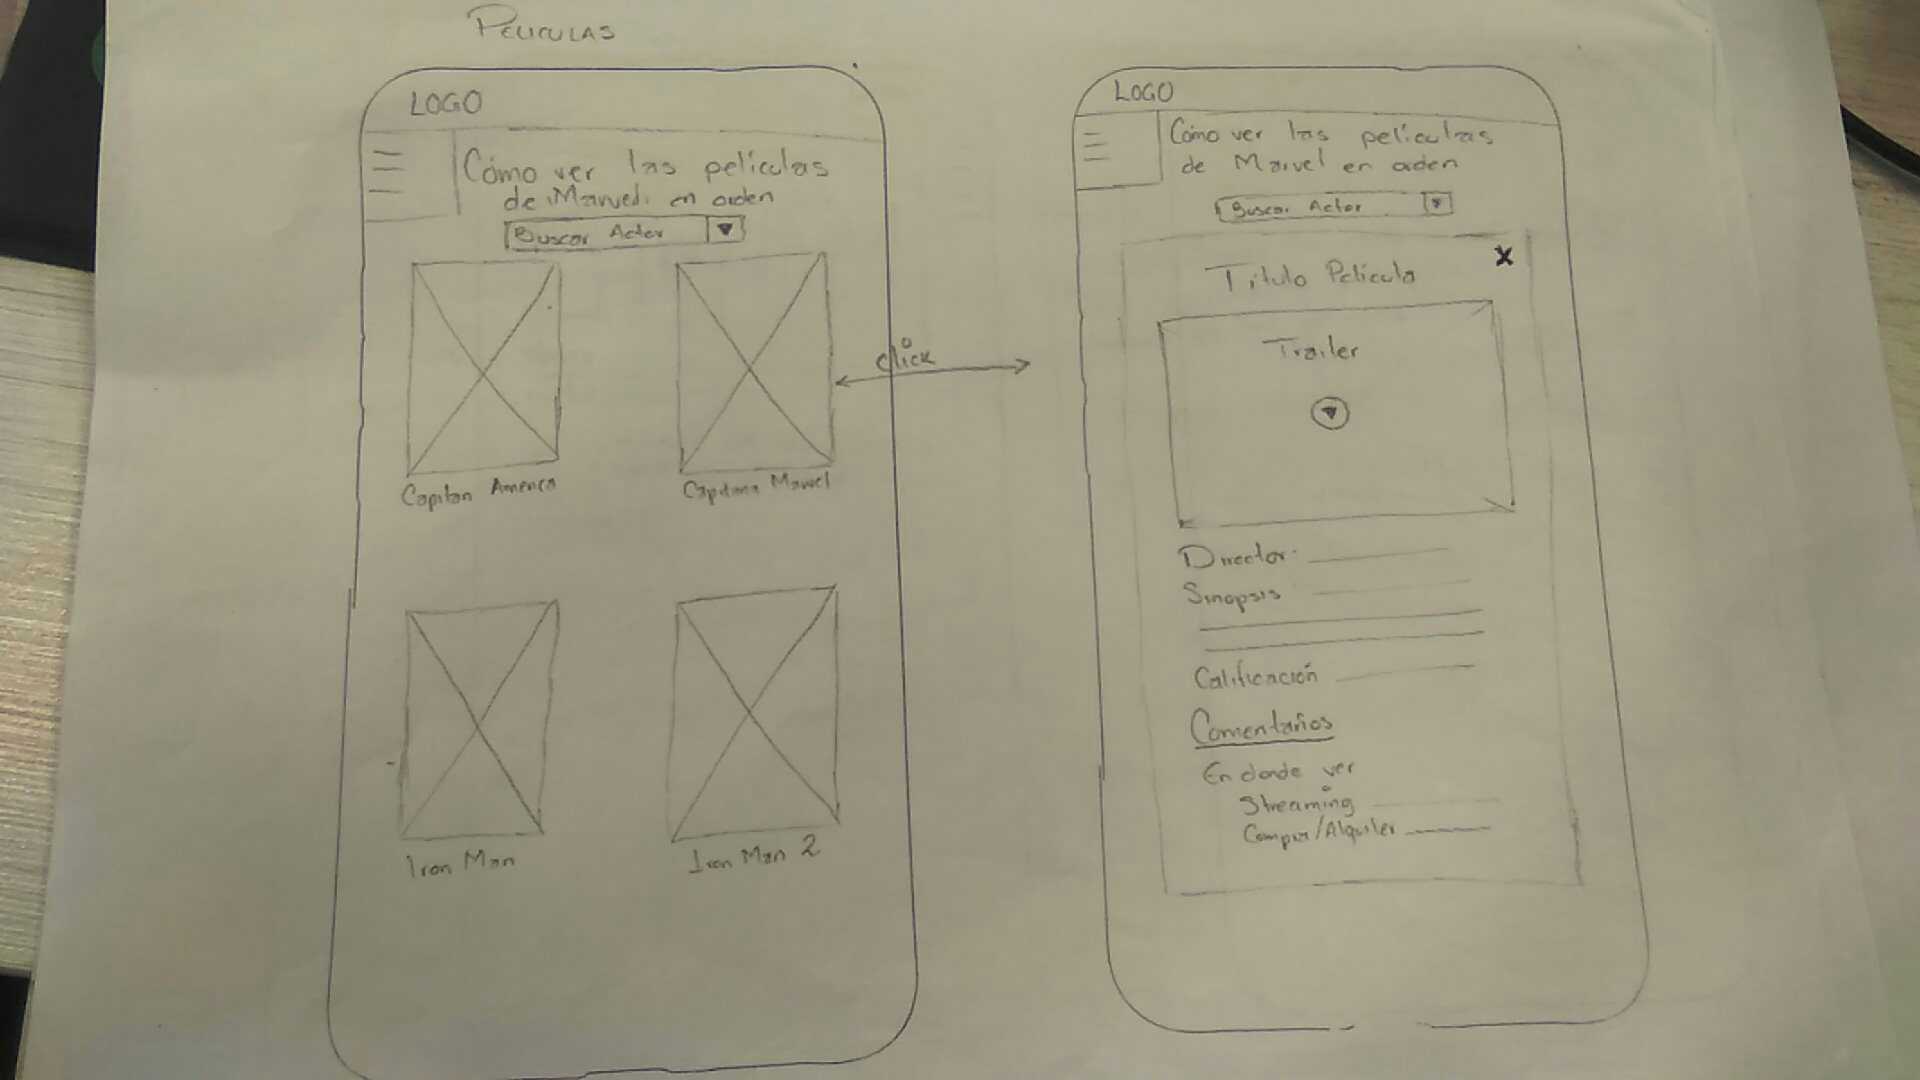 PELICULAS
LOGO
Cómo ver las películas
de Marvel en orden
Buscar Actor
Capitan America
Capitana Marvel
Iron Man
Iron Man 2
click
LOGO
Cómo ver las películas
de Marvel en orden
Buscar Actor
X
Titulo Película
Trailer
Director:
Sinopsis
Calificación
Comentarios
En donde ver
Streaming
Compra/Alquiler